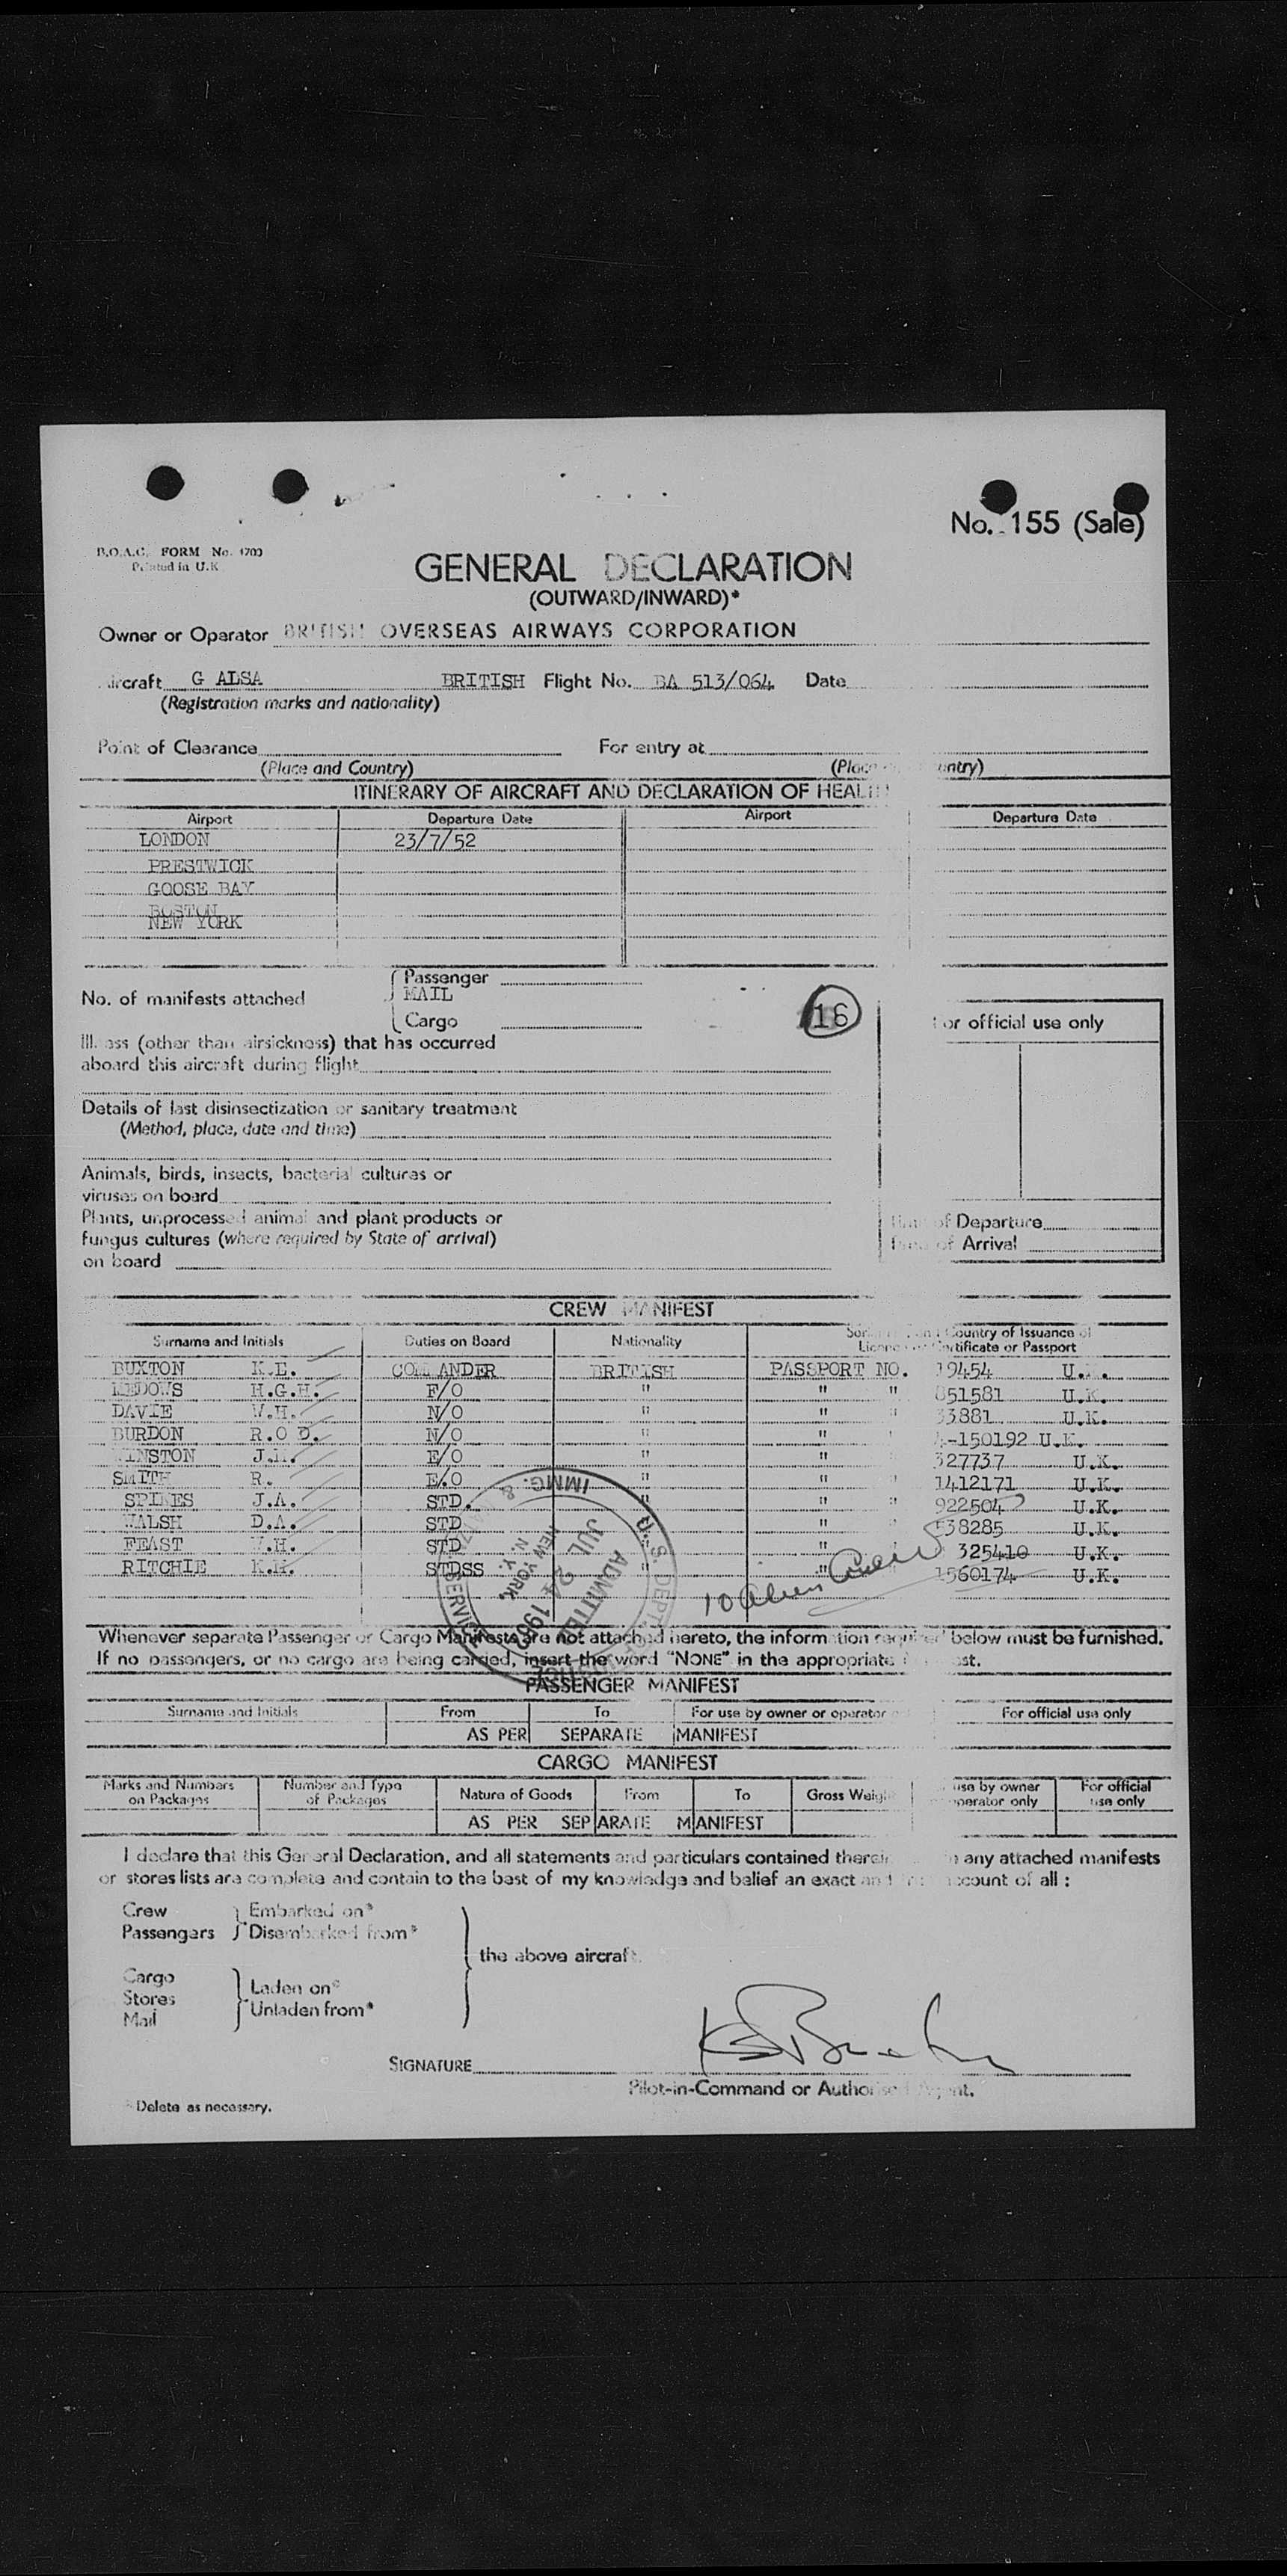 No. 155 (Sale)
B.O.A.C. FORM No. 1703
Printed in U.K.
GENERAL DECLARATION
(OUTWARD/INWARD)*
Owner or Operator BRITISH OVERSEAS AIRWAYS CORPORATION
Aircraft G ALSA BRITISH Flight No. BA 513/064 Date
(Registration marks and nationality)
Point of Clearance For entry at
(Place and Country) (Place and Country)
ITINERARY OF AIRCRAFT AND DECLARATION OF HEALTH
Airport Departure Date Airport Departure Date
LONDON 23/7/52
PRESTWICK
GOOSE BAY
BOSTON
NEW YORK
Passenger
No. of manifests attached MAIL
Cargo
16
For official use only
Illness (other than airsickness) that has occurred
aboard this aircraft during flight
Details of last disinsectization or sanitary treatment
(Method, place, date and time)
Animals, birds, insects, bacterial cultures or
viruses on board
Plants, unprocessed animal and plant products or
fungus cultures (where required by State of arrival)
on board
Time of Departure
Time of Arrival
CREW MANIFEST
Surname and Initials Duties on Board Nationality Country of Issuance of
Certificate or Passport
BUXTON K.E. COMMANDER BRITISH PASSPORT NO. 19454 U.K.
MEDOWS H.G.H. F/O " " " 851581 U.K.
DAVIE W.H. N/O " " " 33881 U.K.
BURDON R.O D. N/O " " " -150192 U.K.
WINSTON J.M. E/O " " 327737 U.K.
SMITH R. E/O " " " 1412171 U.K.
SPINES J.A. STD. " " " 922504 U.K.
WALSH D.A. STD " " " 538285 U.K.
FEAST W.H. STD " 325410 U.K.
RITCHIE K.M. STDSS " " 1560174 U.K.
10 Alien Crew
U.S. DEPT. JUSTICE
IMMG. & SERVICE
ADMITTED
JUL 24 1952
NEW YORK, N.Y.
Whenever separate Passenger or Cargo Manifests are not attached hereto, the information required below must be furnished.
If no passengers, or no cargo are being carried, insert the word "NONE" in the appropriate
PASSENGER MANIFEST
Surname and Initials From To For use by owner or operator For official use only
AS PER SEPARATE MANIFEST
CARGO MANIFEST
Marks and Numbers on Packages Number and Type of Packages Nature of Goods From To Gross Weight use by owner operator only For official use only
AS PER SEPARATE MANIFEST
I declare that this General Declaration, and all statements and particulars contained therein any attached manifests
or stores lists are complete and contain to the best of my knowledge and belief an exact and true account of all :
Crew Embarked on*
Passengers Disembarked from*
the above aircraft.
Cargo
Stores Laden on*
Mail Unladen from*
SIGNATURE
Pilot-in-Command or Authorised Agent.
* Delete as necessary.